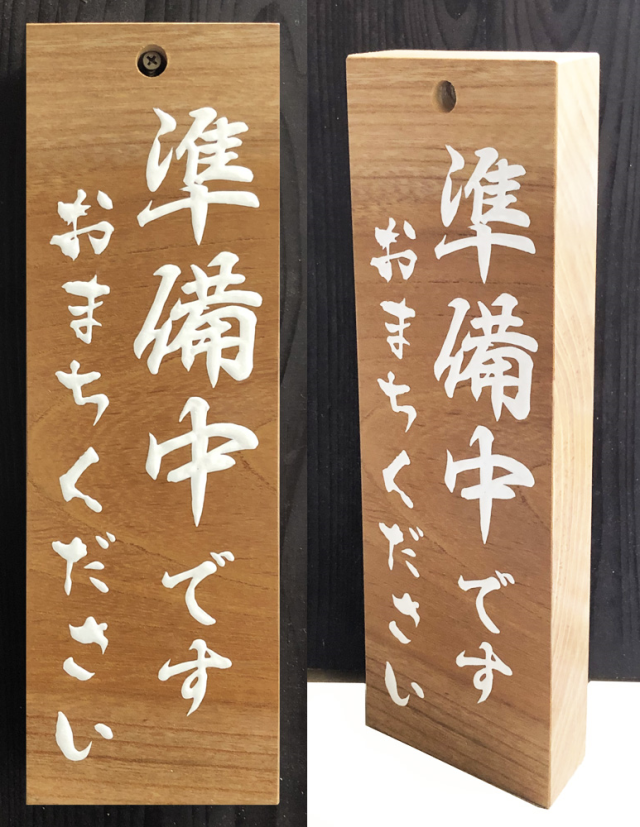 準備中です
おまちください
準備中です
おまちください